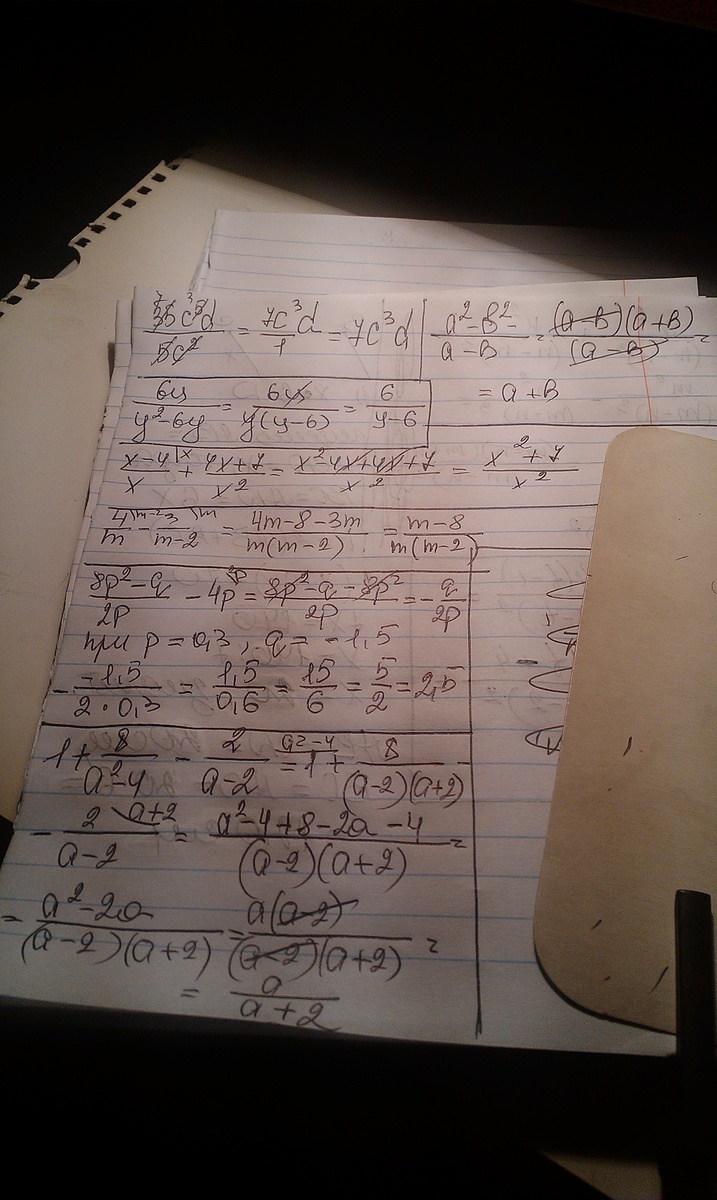 35c⁵d/5c² = 7c³d/1 = 7c³d
a²-в²/a-в = (a-в)(a+в)/(a-в) =
= a+в
6y/y²-6y = 6y/y(y-6) = 6/y-6
x-4/x + 4x+7/x² = x²-4x+4x+7/x² = x²+7/x²
4/m - 3/m-2 = 4m-8-3m/m(m-2) = m-8/m(m-2)
8p²-q/2p - 4p = 8p²-q-8p²/2p = -q/2p
при p=0,3, q=-1,5
- -1,5/2·0,3 = 1,5/0,6 = 15/6 = 5/2 = 2,5
1 + 8/a²-4 - 2/a-2 = 1 + 8/(a-2)(a+2) -
- 2/a-2 = a²-4+8-2a-4/(a-2)(a+2) =
= a²-2a/(a-2)(a+2) = a(a-2)/(a-2)(a+2) =
= a/a+2